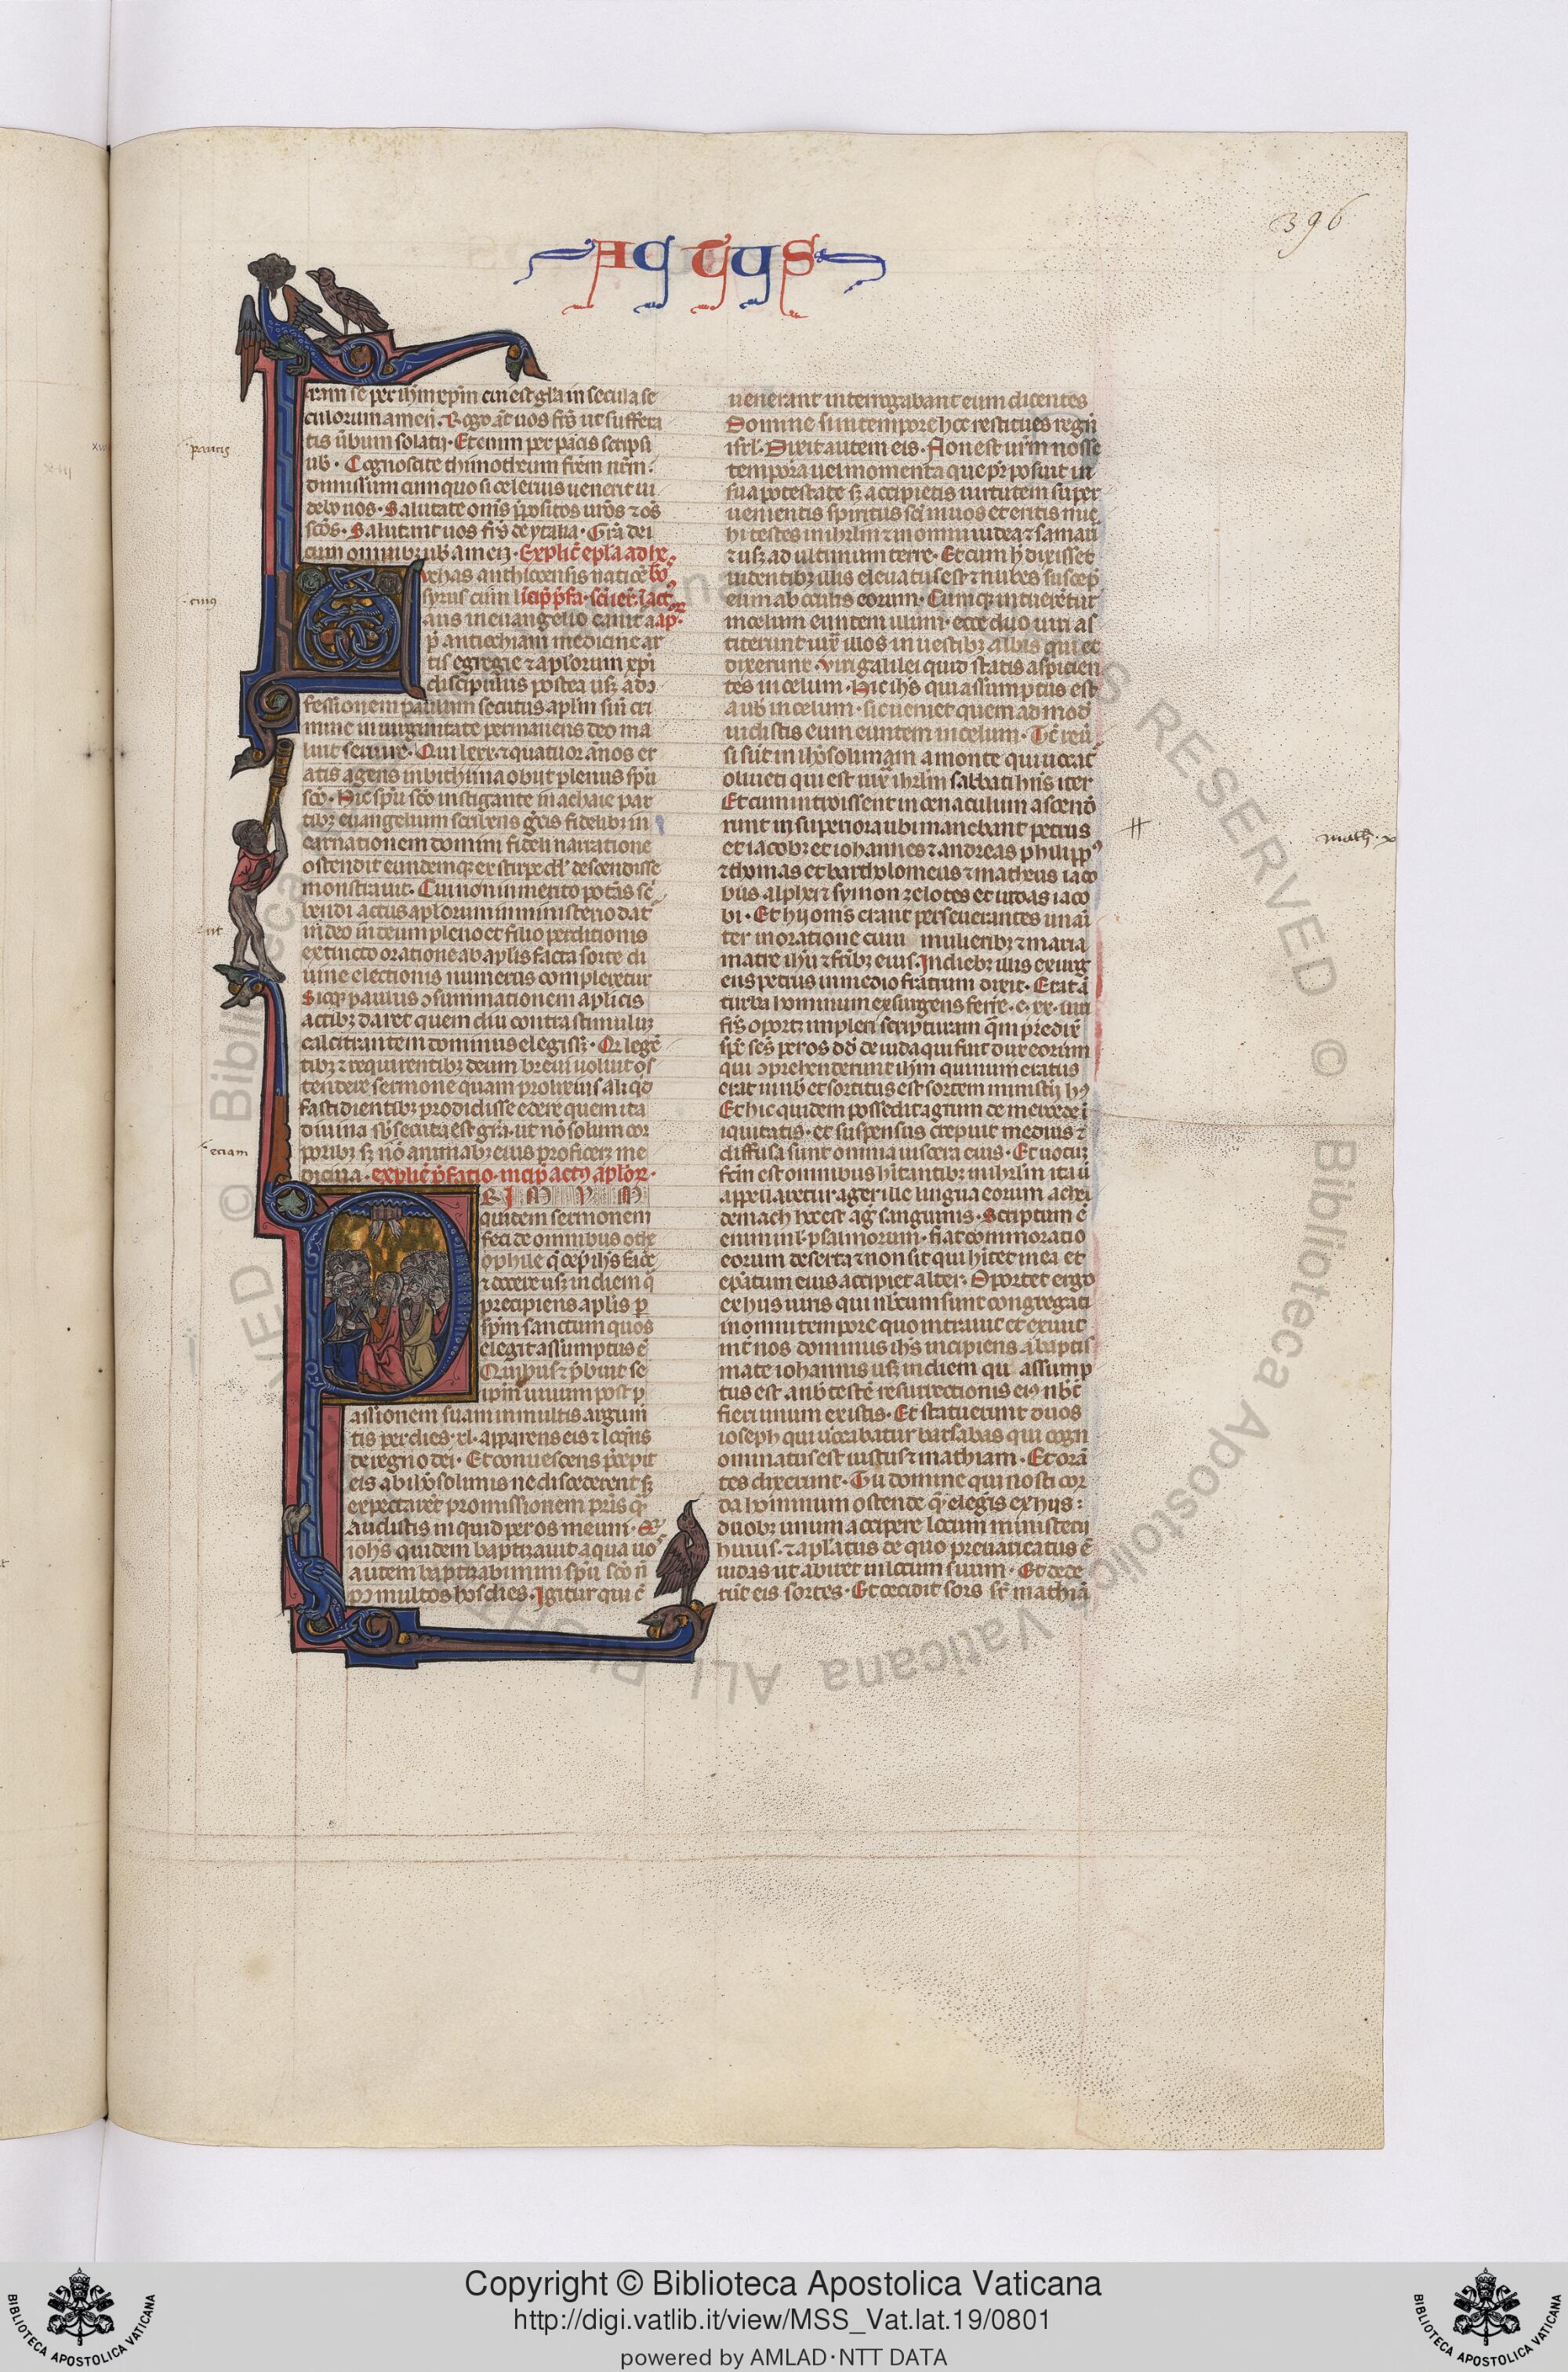 396
ACTUS
coram se per ihm xpm cui est gla in secula se
culorum amen. Rogo at uos frs ut suffera
tis ubum solatii. Etenim per paucis scripsi
paucis
ub. Cognoscite thimotheum frem nrm.
dimissum cum quo si celerius uenerit ui
debo uos. Salutate oms ppositos uros & os
scos. Salutant uos frs de ytalia. Gra dei
cum omnibz ub amen. Explic epla ad he
breos
Lucas anthiocensis natioe
syrus cuius
eius
laus in euangelio canit a
pd antiochiam medicine ar
tis egregie & aplorum xpi
discipulus postea usz ad co
fessionem paulum secutus aplm sin cri
mine in uirginitate permanens deo ma
luit seruire. Qui lxxx. & quatuor annos et
atis agens in bithinia obiit plenus spu
sco. Hic spu sco instigante in achaie par
tibz euangelium scribens grecis fidelibz in
carnationem domini fideli narratione
ostendit eundemque ex stirpe dd descendisse
monstrauit. Cui non inmerito potas sc
bendi actus aplorum in ministerio dat
ut deo in deum pleno et filio perditionis
extincto oratione ab aplis facta sorte di
uine electionis numerus compleretur
Sicqz paulus consummationem aplicis
actibz daret quem diu contra stimulum
calcitrantem dominus elegisset. Qr legen
tibz & requirentibz deum breui uoluit os
tendere sermone quam prolixius aliqd
fastidientibz prodidisse
diuina subsecuta est gra. ut no solum cor
poribz sz no animabz eius proficeret me
eciam
dicina. explic pfatio. incip actus aplor.
PRIMUM
quidem sermonem
feci de omnibus o the
ophile q cepit ihs face
& docere usz in diem q
precipiens aplis p
spm sanctum quos
elegit assumptus e
Quibus & pbuit se
ipm uiuum post p
assionem suam in multis argum
tis per dies. xl. apparens eis & loqns
de regno dei. Et conuescens pcepit
eis ab iherosolimis ne discederent sz
expectaret promissionem pris qm
audistis inquid per os meum. Qr
iohs quidem baptizauit aqua uo
autem baptizabimini spu sco n
p multos hos dies. Igitur qui c
uenerant interrogabant eum dicentes
Domine si in tempore hoc restitues regn
isrl. Dixit autem eis. Non est urm nosse
tempora uel momenta que pr posuit in
sua potestate sz accipietis uirtutem super
uenientis spiritus sci in uos et eritis mi
hi testes in ihrlm & in omni iudea & samari
& usz ad ultimum terre. Et cum h dixisset
uidentibz illis eleuatus est & nubes suscep
eum ab oculis eorum. Cumqz intuerentur
in celum euntem illum. ecce duo uiri as
titerunt iux illos in uestibz albis qui et
dixerunt. Viri galilei quid statis aspicien
tes in celum. Hic ihs qui assumptus est
a uob in celum. sic ueniet quem ad mod
uidistis eum euntem in celum. Tc reu
si sunt in iherosolimam a monte qui uocat
oliueti qui est iux ihrlm sabbati hns iter
Et cum introissent in cenaculum ascend
runt in superiora ubi manebant petrus
et iacobz et iohannes & andreas philipp
math. x
& thomas et bartholomeus & matheus iaco
bus alphei & symon zelotes et iudas iaco
bi. Et hij oms erant perseuerantes unani
ter in oratione cum mulieribz & maria
matre ihu & fribz eius. In diebz illis exurg
ens petrus in medio fratrum dixit. Erat a
turba hominum exsurgens ferre. c. xx. uiri
frs oportz impleri scripturam qm predix
sps scs per os dd de iuda qui fuit dux eorum
qui comprehenderunt ihm qui numeratus
erat in nob et sortitus est sortem ministij hs
Et hic quidem possedit agrum de mercede i
iquitatis. et suspensus crepuit medius &
diffusa sunt omnia uiscera eius. Et notum
fcm est omnibus hitantibz in ihrlm ita ut
appellaretur ager ille lingua eorum achel
demach hoc est ag sanguinis. Scriptum e
enim in l. psalmorum. fiat commoratio
eorum deserta & non sit qui hitet in ea et
epatum eius accipiet alter. Oportet ergo
ex hiis uiris qui nbcum sunt congregati
in omni tempore quo intrauit et exiuit
int nos dominus ihs incipiens a baptis
mate iohannis usz in diem qui assump
tus est a nob teste resurrectionis eius nbc
fieri unum ex istis. Et statuerunt duos
ioseph qui uocabatur barsabas qui cogn
ominatus est iustus & mathiam. Et oran
tes dixerunt. Tu domine qui nosti cor
da hominum ostende q elegeris ex hiis:
duobz unum accipere locum ministerij
huius. & aplatus de quo preuaricatus e
iudas ut abiret in locum suum. Et dede
runt eis sortes. Et cecidit sors sr mathia
Copyright © Biblioteca Apostolica Vaticana
http://digi.vatlib.it/view/MSS_Vat.lat.19/0801
powered by AMLAD·NTT DATA
BIBLIOTECA APOSTOLICA VATICANA
BIBLIOTECA APOSTOLICA VATICANA